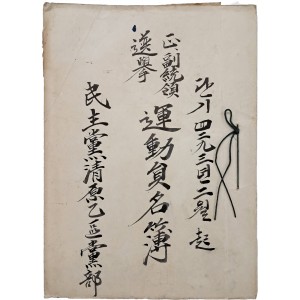 단기 四二九三년 二월 起
正.副統領
選擧
運動員名簿
民主黨淸原乙區黨部